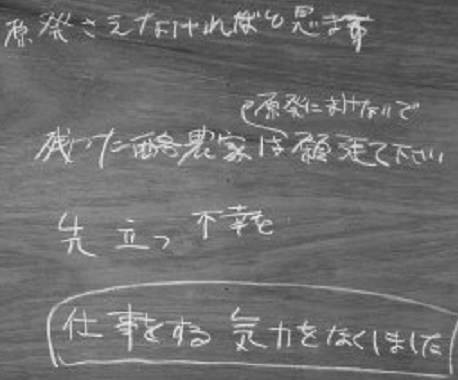 原発さえなければと思ます
原発にまけないで
残った酪農家は願張て下さい
先立つ不幸を
仕事をする気力をなくしました